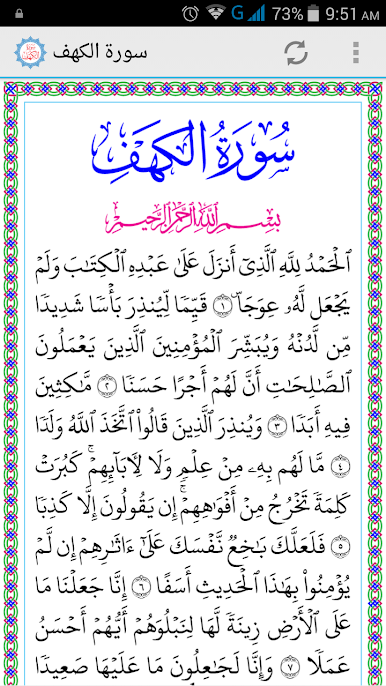 G 73% 9:51 AM
سورة الكهف
سُورَةُ الكَهَفِ
بِسْمِ اللَّهِ الرَّحْمَٰنِ الرَّحِيمِ
ٱلْحَمْدُ لِلَّهِ ٱلَّذِىٓ أَنزَلَ عَلَىٰ عَبْدِهِ ٱلْكِتَٰبَ وَلَمْ
يَجْعَل لَّهُۥ عِوَجَاۜ ١ قَيِّمًا لِّيُنذِرَ بَأْسًا شَدِيدًا
مِّن لَّدُنْهُ وَيُبَشِّرَ ٱلْمُؤْمِنِينَ ٱلَّذِينَ يَعْمَلُونَ
ٱلصَّٰلِحَٰتِ أَنَّ لَهُمْ أَجْرًا حَسَنًا ٢ مَّٰكِثِينَ
فِيهِ أَبَدًا ٣ وَيُنذِرَ ٱلَّذِينَ قَالُوا۟ ٱتَّخَذَ ٱللَّهُ وَلَدًا
٤ مَّا لَهُم بِهِۦ مِنْ عِلْمٍ وَلَا لِءَابَآئِهِمْ ۚ كَبُرَتْ
كَلِمَةً تَخْرُجُ مِنْ أَفْوَٰهِهِمْ ۚ إِن يَقُولُونَ إِلَّا كَذِبًا
٥ فَلَعَلَّكَ بَٰخِعٌ نَّفْسَكَ عَلَىٰٓ ءَاثَٰرِهِمْ إِن لَّمْ
يُؤْمِنُوا۟ بِهَٰذَا ٱلْحَدِيثِ أَسَفًا ٦ إِنَّا جَعَلْنَا مَا
عَلَى ٱلْأَرْضِ زِينَةً لَّهَا لِنَبْلُوَهُمْ أَيُّهُمْ أَحْسَنُ
عَمَلًا ٧ وَإِنَّا لَجَٰعِلُونَ مَا عَلَيْهَا صَعِيدًا